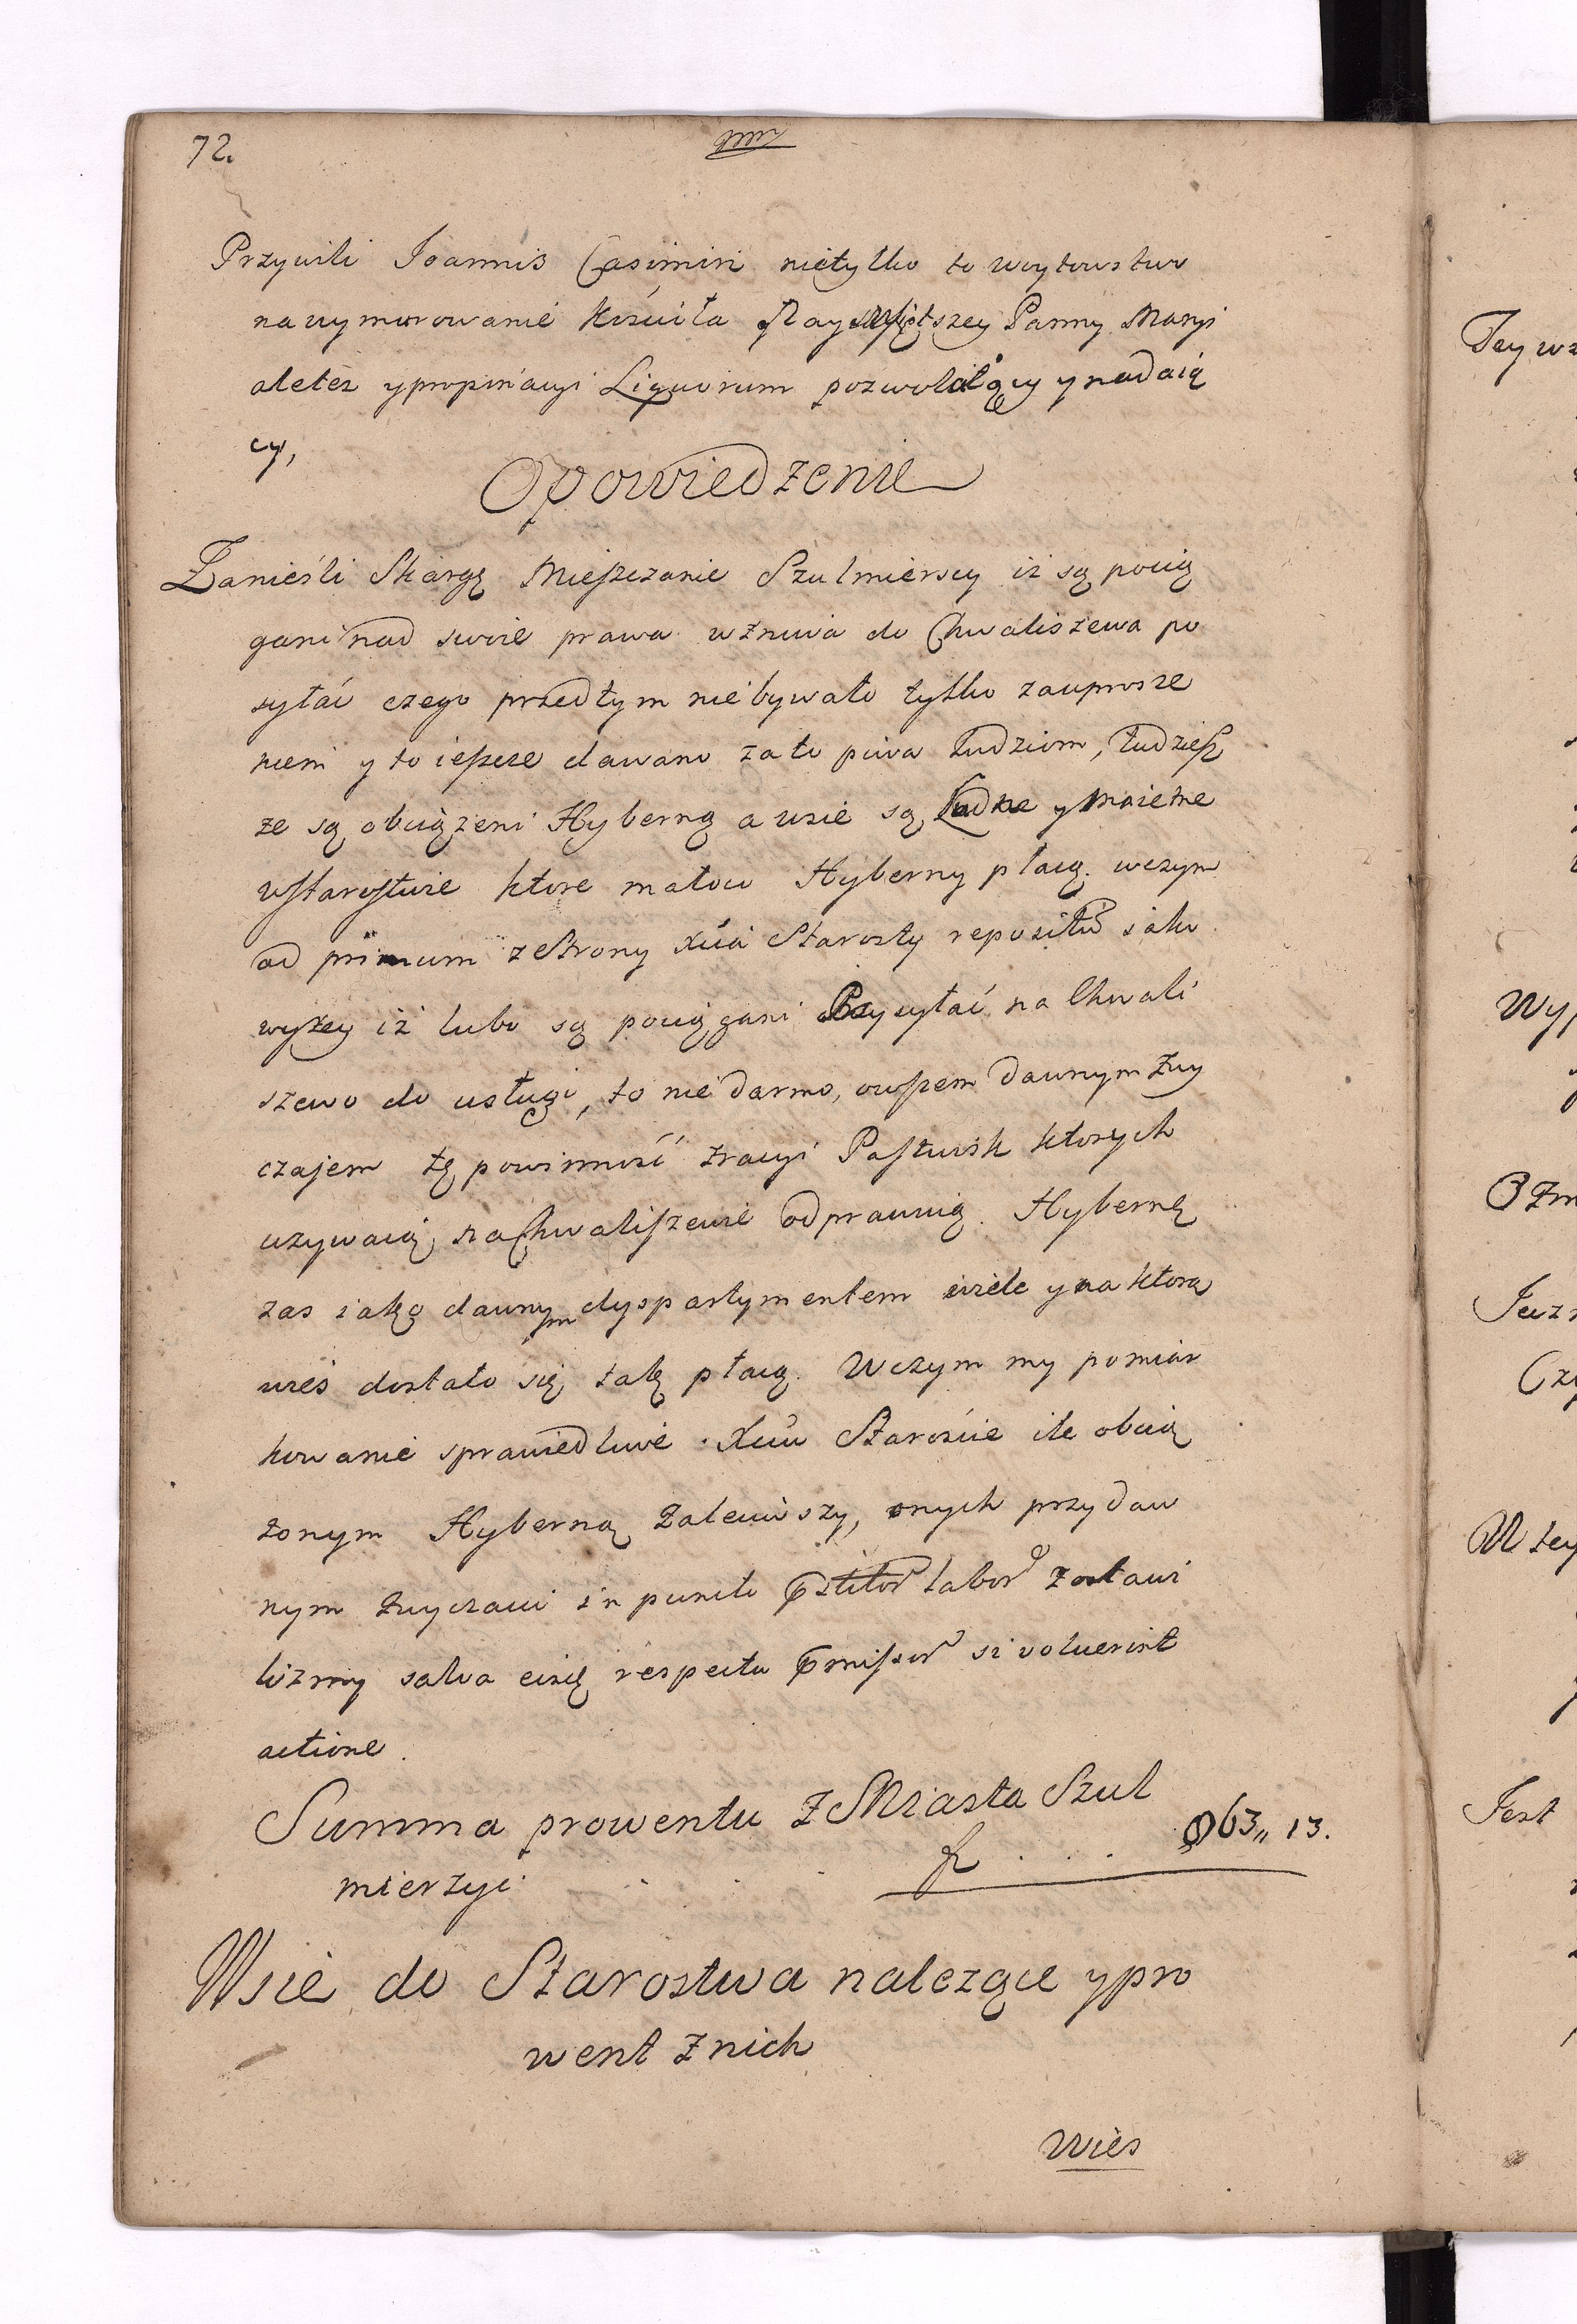 72.
Przywili Joannis Casimiri nietylko to woytowstwo
na wymurowanie kościoła Nayswiętszey Panny Maryi
aletez ypropinacyi Liquorum pozwalaiący y nadaią
cy,
Opowiedzenie
Zanieśli Skargę Mieszczanie Szulmierscy iż są pocią
gani nad swoie prawa w zniwa do Chwaliszewa po
syłać czego przedtym niebywało tylko zauprosze
niem y to ieszcze dawano zato piwa ludziom, tudziesz
ze są obciązeni Hyberną a wsie są ludne y maiętne
wstarostwie ktore mało co Hyberny płacą. wczym
ad primum z Strony Xcia Starosty reposituͦ iako
wyzey iż lubo są pociągani posyłać na Chwali
szewo do usługi, to nie darmo, owszem dawnym zwy
czajem tę powinność zracyi Pastwisk ktorych
uzywaią na Chwaliszewie odprawuią. Hybernę
zas iako dawnym dyspartymentem wiele y na ktorą
wieś dostało się takę płacą. Wczym my pomiar
kowanie sprawiedliwe Xciu Staroście ile obcią
zonym Hyberną zaleciwszy, onych przy daw
nym zwyczaiu in puncto laborͦ zostawi
lizmy salva respectu pmissorͦ si voluerint
actione.
Summa prowentu z Miasta Szul
mierzyc f. . . . 963,, 13.
Wsie do Starostwa nalezące ypro
went z nich
Wies
Tey wz
Wyp
Ozm
Jest